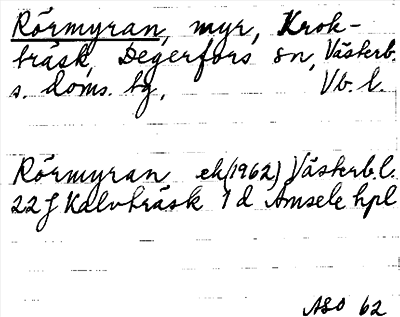 Rörmyran, myr, Krok-
träsk, Degerfors sn, Västerb.
s. doms. bg, Vb. l.
Rörmyran ek (1962) Västerb. l.
22 J Kalvträsk 1 d Åmsele hpl
ASO 62